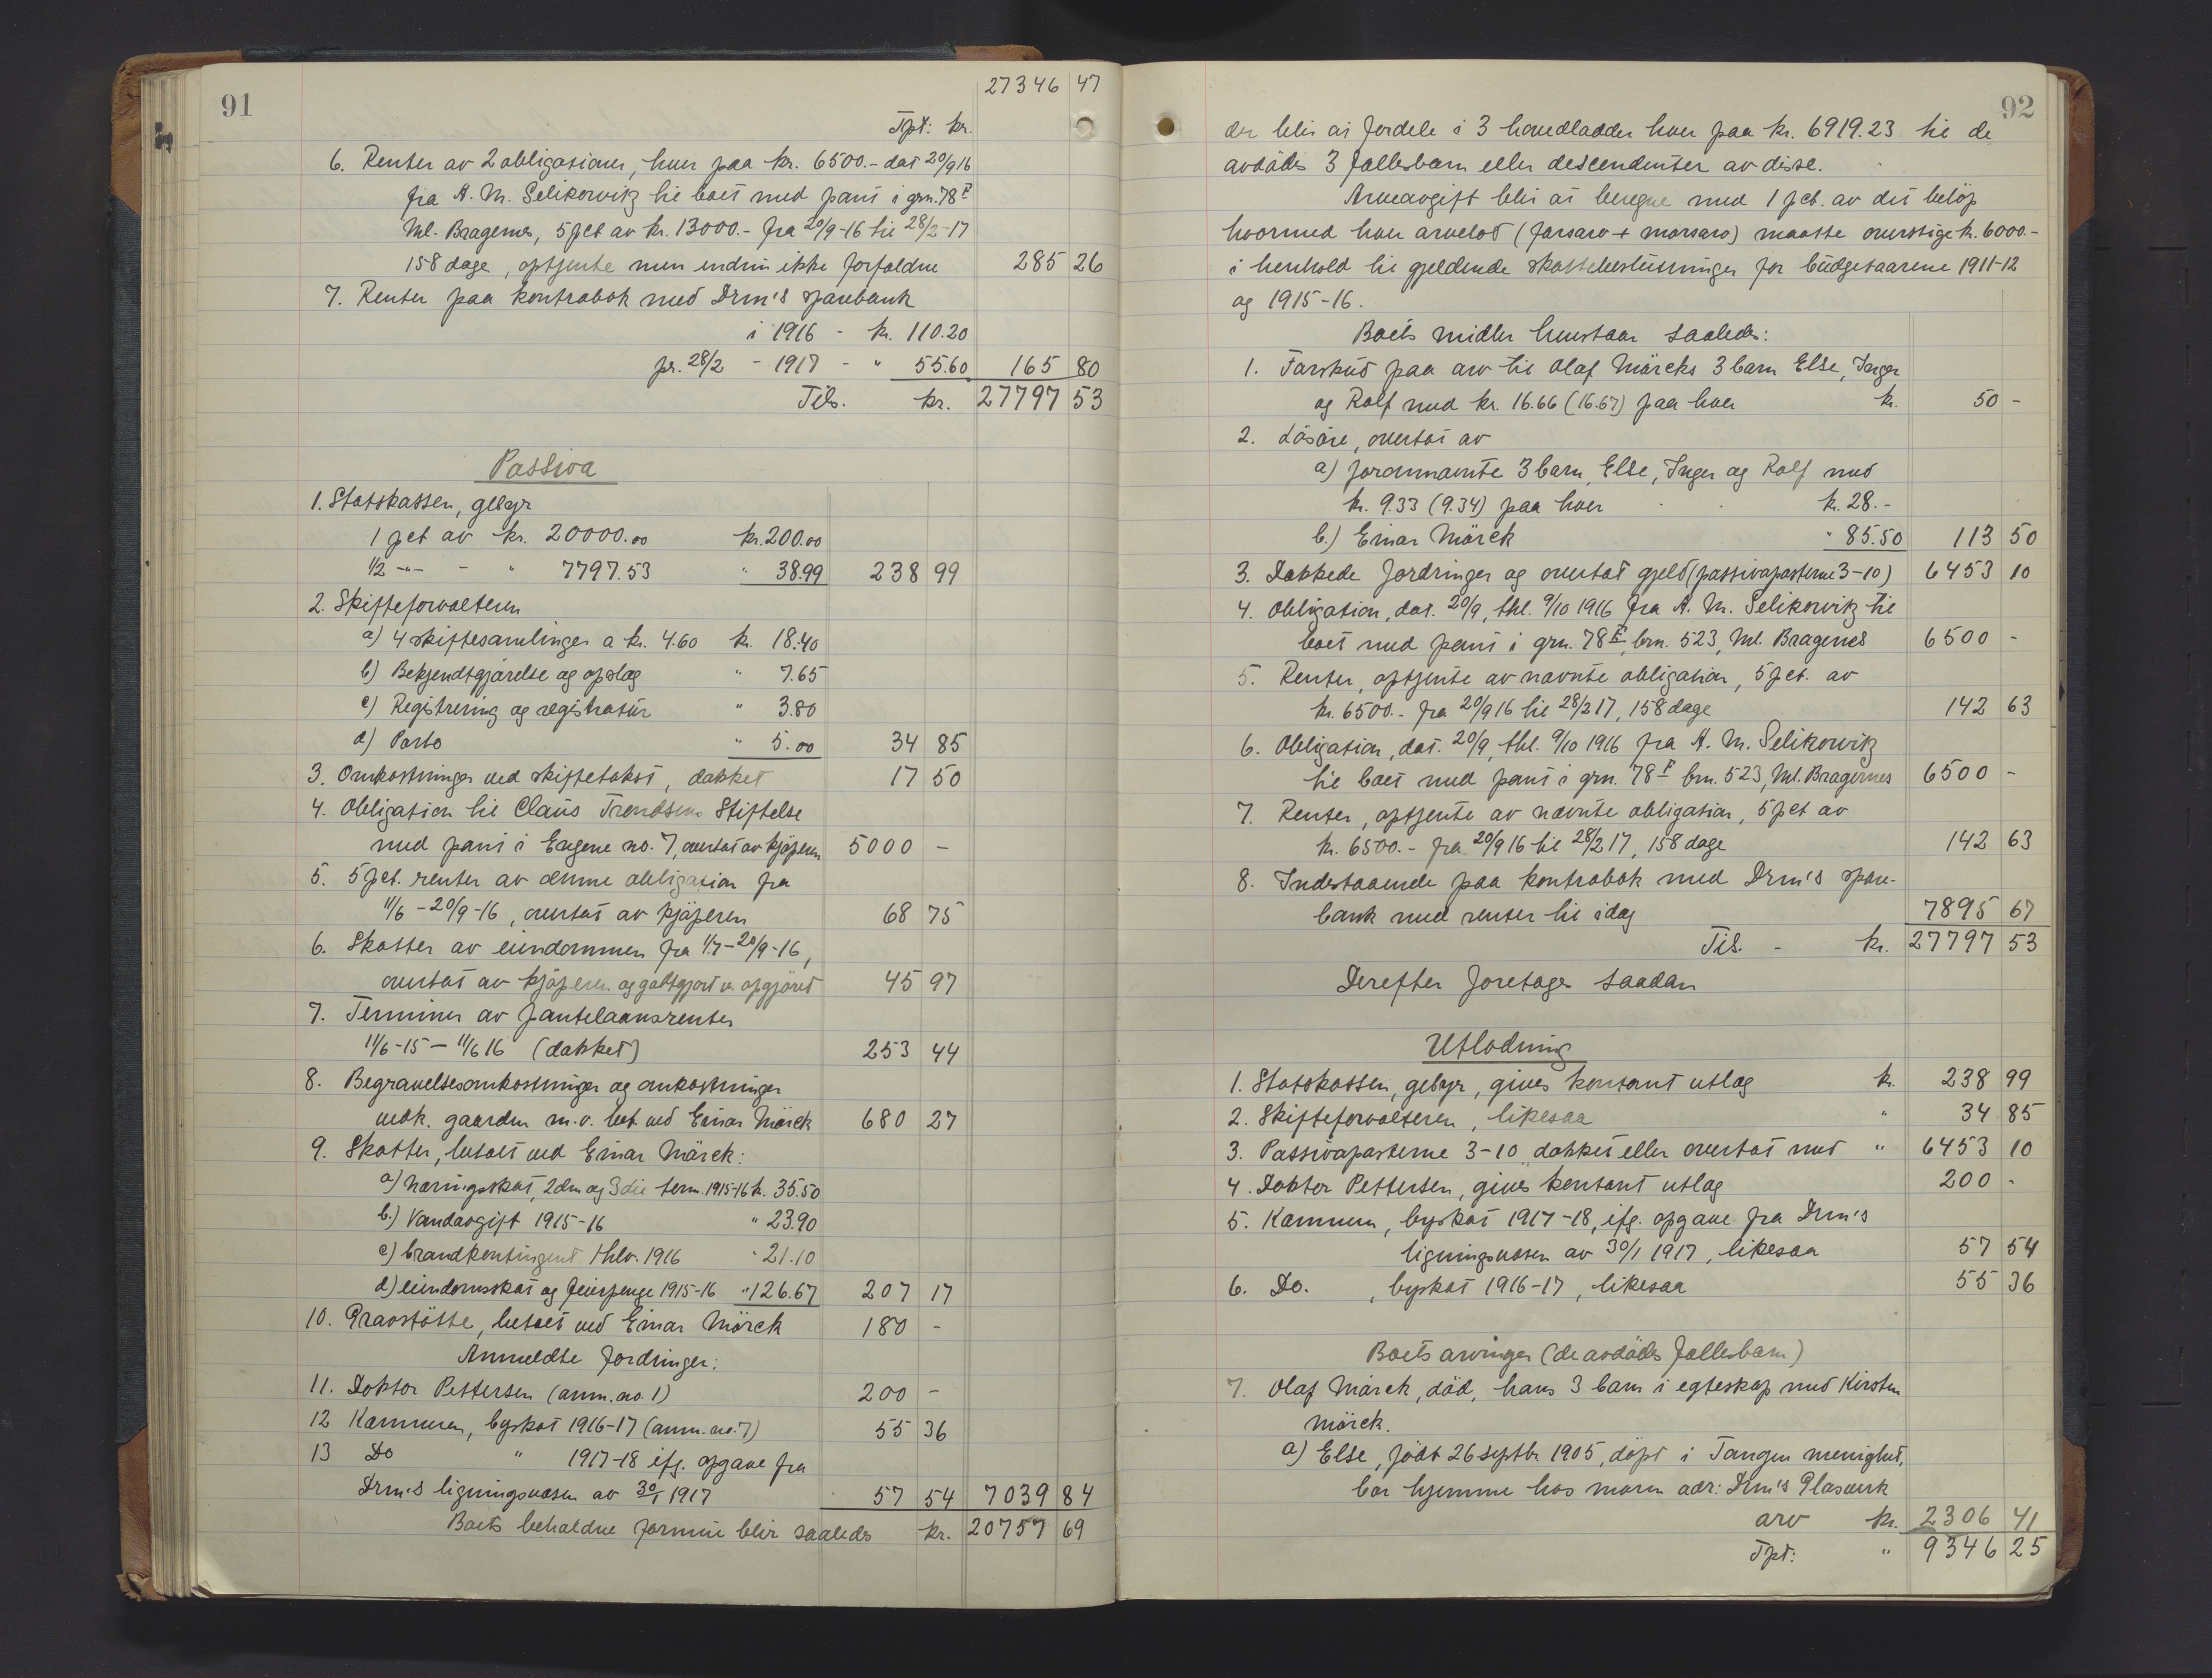 91
27346 47
Tpt: kr.
6. Renter av 2 obligasioner, hver paa kr. 6500.- dat 20/9 16
fra A. M. Selikowitz til boet med pant i grn. 78 F
Ml. Bragernes, 5 pct av kr. 13000.- fra 20/9-16 til 28/2-17
158 dage, optjente men endnu ikke forfaldne 285 26
7. Renter paa kontrabok med Drm's sparebank
i 1916 - kr. 110.20
pr. 28/2 - 1917 - " 55.60 165 80
Tils. kr. 27797 53
Passiva
1. Statskassen, gebyr
1 pct av kr. 20000.00 kr. 200.00
1/2 -"- - " 7797.53 " 38.99 238 99
2. Skifteforvalteren
a) 4 skiftesamlinger a kr. 4.60 kr. 18.40
b) Bekjendtgjørelse og opslag " 7.65
c) Registrering og registratur " 3.80
d) Porto " 5.00 34 85
3. Omkostninger ved skiftetakst, dækket 17 50
4. Obligation til Claus Trondsens Stiftelse
med pant i Engene no. 7, overtat av kjøperen 5000 -
5. 5 pct. renter av denne obligation fra
11/6 - 20/9-16, overtat av kjøperen 68 75
6. Skatter av eiendommen fra 1/7 - 20/9-16,
overtat av kjøperen og godtgjort v. opgjøret 45 97
7. Terminer av pantelaansrenter
11/6-15 - 11/6 16 (dækket) 253 44
8. Begravelsesomkostninger og omkostninger
vedk. gaarden m.v. bet. ved Einar Mørck 680 27
9. Skatter, betalt ved Einar Mørck:
a) Næringsskat, 2den og 3die term. 1915-16 kr. 35.50
b) Vandavgift 1915-16 " 23.90
c) brandkontingent 1 hlv. 1916 " 21.10
d) eiendomsskat og feierpenge 1915-16 " 126.67 207 17
10. Gravstøtte, betalt ved Einar Mörck 180 -
Anmeldte fordringer:
11. Doktor Pettersen (anm. no. 1) 200 -
12 Kæmneren, byskat 1916-17 (anm. no. 7) 55 36
13 Do " 1917-18 ifg. opgave fra
Drm's ligningsvæsen av 30/1 1917 57 54 7039 84
Boets beholdne formue blir saaledes kr. 20757 69
92
der blir at fordele i 3 hovedlodder hver paa kr. 6919.23 til de
avdødes 3 fællesbarn eller descendenter av disse.
Arveavgift blir at beregne med 1 pct. av det beløp
hvormed hver arvelod (farsarv + morsarv) maatte overstige kr. 6000.-
i henhold til gjeldende skattebeslutninger for budgetaarene 1911-12
og 1915-16.
Boets midler henstaar saaledes:
1. Forskud paa arv til Olaf Mörcks 3 barn Else, Inger
og Rolf med kr. 16.66 (16.67) paa hver kr. 50 -
2. Løsøre, overtat av
a) forannævnte 3 barn, Else, Inger og Rolf med
kr. 9.33 (9.34) paa hver kr. 28.-
b.) Einar Mörck " 85.50 113 50
3. Dækkede fordringer og overtat gjeld (passivaposterne 3-10) 6453 10
4. Obligation, dat. 20/9, thl. 9/10 1916 fra A. M. Selikowitz til
boet med pant i grn. 78 F, brn. 523, Ml. Bragernes 6500 -
5. Renter, optjente av nævnte obligation, 5 pct. av
kr. 6500.- fra 20/9 16 til 28/2 17, 158 dage 142 63
6. Obligation, dat. 20/9, thl. 9/10 1916 fra A. M. Selikowitz
til boet med pant i grn. 78 F brn. 523, Ml. Bragernes 6500 -
7. Renter, optjente av nævnte obligation, 5 pct av
kr. 6500.- fra 20/9 16 til 28/2 17, 158 dage 142 63
8. Indestaaende paa kontrabok med Drm's spare-
bank med renter til idag 7895 67
Tils. - kr. 27797 53
Derefter foretages saadan
Utlodning
1. Statskassen, gebyr, gives kontant utlæg kr. 238 99
2. Skifteforvalteren, likesaa " 34 85
3. Passivaposterne 3-10 dækket eller overtat med " 6453 10
4. Doktor Pettersen, gives kontant utlæg 200 -
5. Kæmneren, byskat 1917-18, ifg. opgave fra Drm's
ligningsvæsen av 30/1 1917, likesaa 57 54
6. Do. , byskat 1916-17, likesaa 55 36
Boets arvinger (de avdødes fællesbarn)
7. Olaf Mörck, død, hans 3 barn i egteskap med Kirsten
Mörck.
a) Else, født 26 septbr. 1905, døpt i Tangen menighet,
bor hjemme hos moren adr: Drm's Glasverk
arv kr. 2306 41
Tpt: " 9346 25